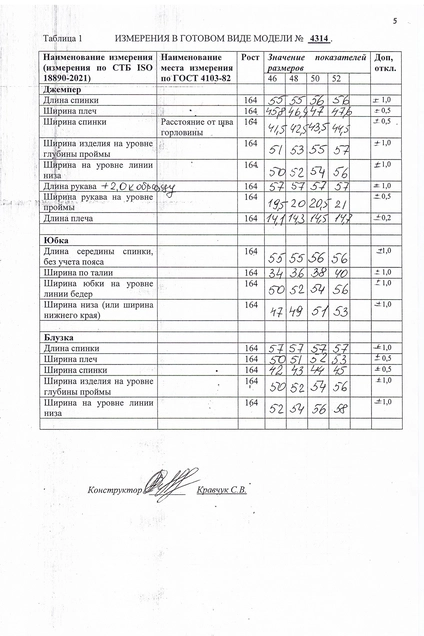 5
Таблица 1 ИЗМЕРЕНИЯ В ГОТОВОМ ВИДЕ МОДЕЛИ № 4314 .
Наименование измерения (измерения по СТБ ISO 18890-2021) Наименование места измерения по ГОСТ 4103-82 Рост Значение показателей размеров Доп, откл.
46 48 50 52
Джемпер
Длина спинки 164 55 55 56 56 ± 1,0
Ширина плеч 164 45,8 46,4 47 47,6 ± 0,5
Ширина спинки Расстояние от цвa горловины 164 41,5 42,5 43,5 44,5 ± 0,5
Ширина изделия на уровне глубины проймы 164 51 53 55 57 ± 1,0
Ширина на уровне линии низа 164 50 52 54 56 ± 1,0
Длина рукава + 2,0 к образцу 164 57 57 57 57 ± 1,0
Ширина рукава на уровне проймы 164 19,5 20 20,5 21 ± 0,5
Длина плеча 164 14,1 14,3 14,5 14,7 ± 0,2
Юбка
Длина середины спинки, без учета пояса 164 55 55 56 56 ±1,0
Ширина по талии 164 34 36 38 40 ± 1,0
Ширина юбки на уровне линии бедер 164 50 52 54 56 ± 1,0
Ширина низа (или ширина нижнего края) 164 47 49 51 53 ± 1,0
Блузка
Длина спинки 164 57 57 57 57 ± 1,0
Ширина плеч 164 50 51 52 53 ± 0,5
Ширина спинки 164 42 43 44 45 ± 0,5
Ширина изделия на уровне глубины проймы 164 50 52 54 56 ± 1,0
Ширина на уровне линии низа 164 52 54 56 58 ± 1,0
Конструктор Кравчук С.В.